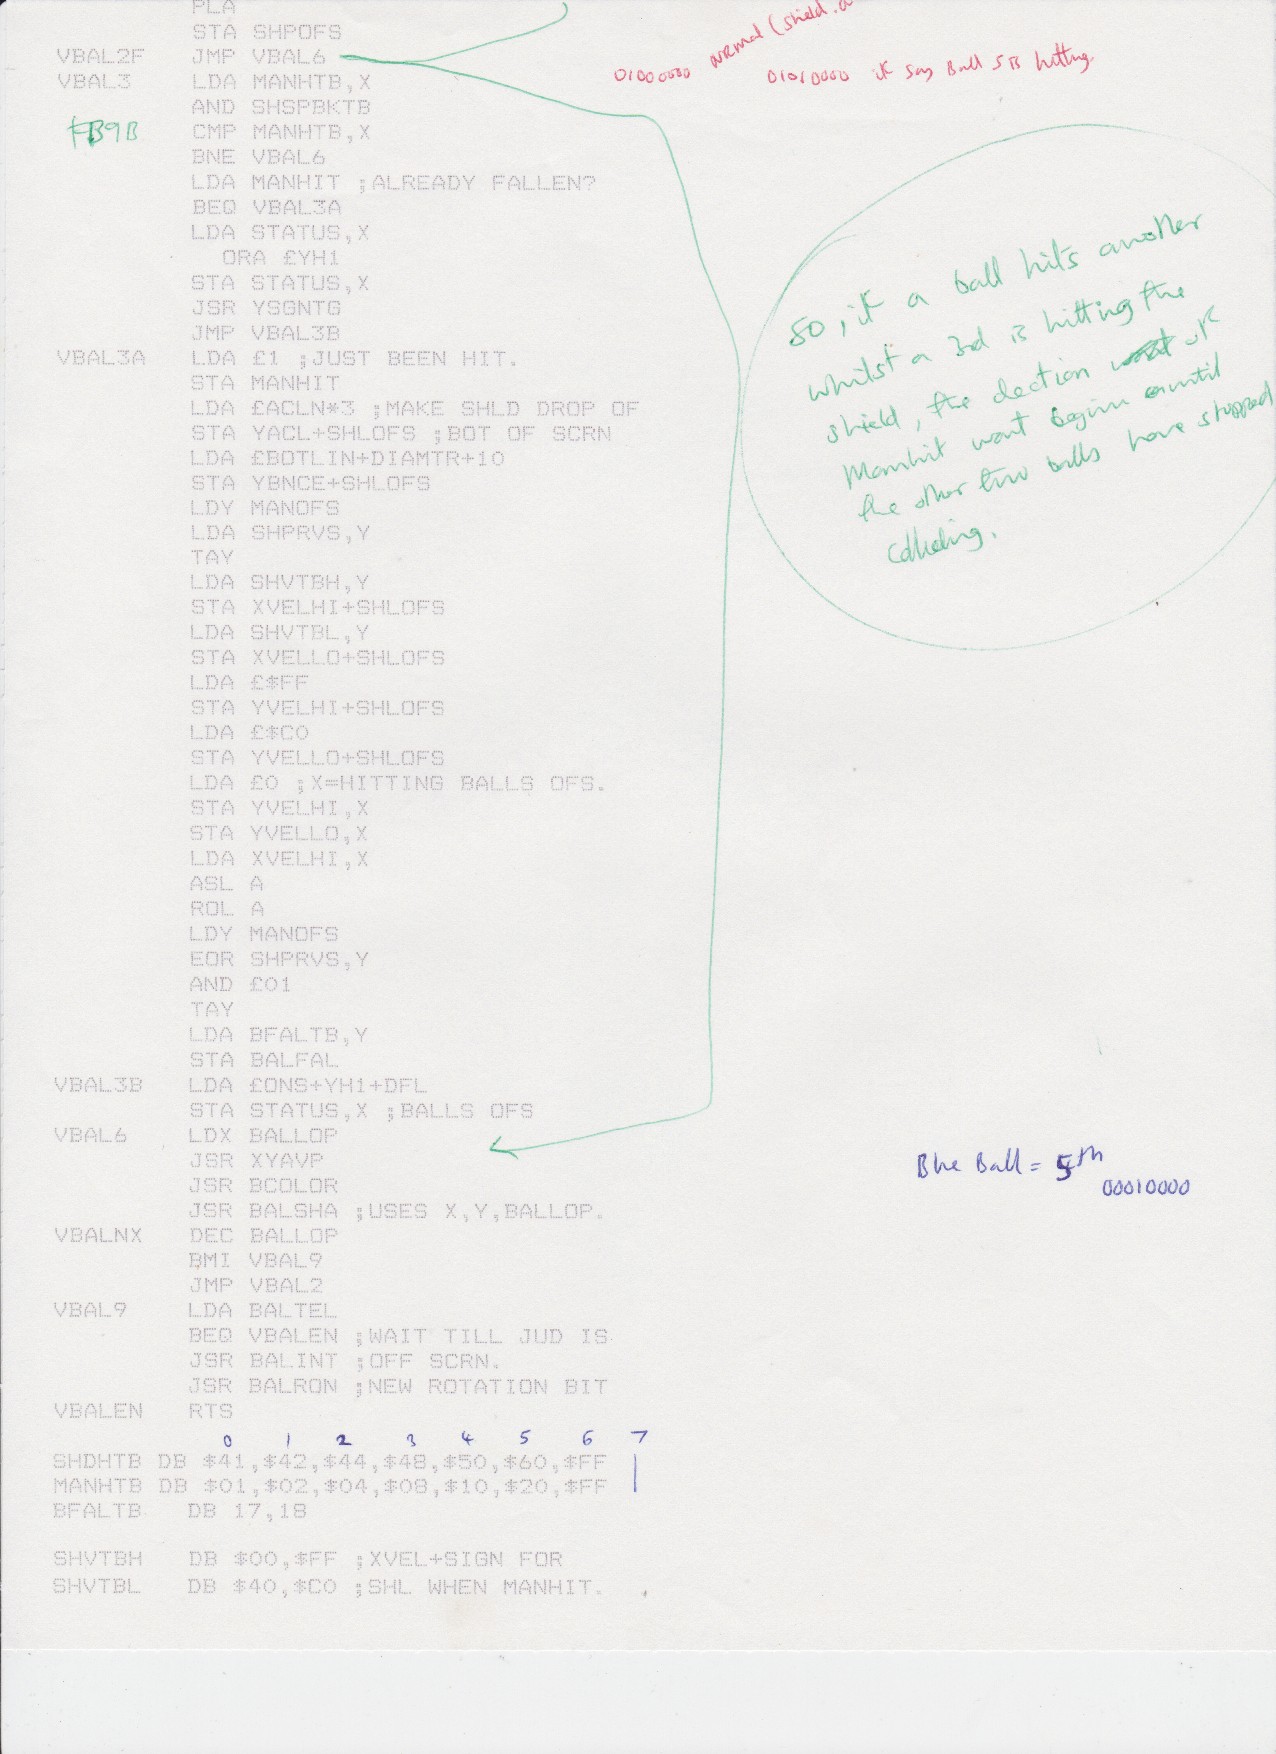 PLA
STA SHPOFS
VBAL2F JMP VBAL6
01000000 normal (shield.
01010000 if say Ball 5 is hitting.
VBAL3 LDA MANHTB,X
AND SHSPBKTB
FB9B CMP MANHTB,X
BNE VBAL6
LDA MANHIT ;ALREADY FALLEN?
BEQ VBAL3A
LDA STATUS,X
ORA £YH1
STA STATUS,X
JSR YSGNTG
JMP VBAL3B
VBAL3A LDA £1 ;JUST BEEN HIT.
STA MANHIT
LDA £ACLN*3 ;MAKE SHLD DROP OF
STA YACL+SHLOFS ;BOT OF SCRN
LDA £BOTLIN+DIAMTR+10
STA YBNCE+SHLOFS
LDY MANOFS
LDA SHPRVS,Y
TAY
LDA SHVTBH,Y
STA XVELHI+SHLOFS
LDA SHVTBL,Y
STA XVELLO+SHLOFS
LDA £$FF
STA YVELHI+SHLOFS
LDA £$C0
STA YVELLO+SHLOFS
LDA £0 ;X=HITTING BALLS OFS.
STA YVELHI,X
STA YVELLO,X
LDA XVELHI,X
ASL A
ROL A
LDY MANOFS
EOR SHPRVS,Y
AND £01
TAY
LDA BFALTB,Y
STA BALFAL
VBAL3B LDA £ONS+YH1+DFL
STA STATUS,X ;BALLS OFS
VBAL6 LDX BALLOP
JSR XYAVP
JSR BCOLOR
JSR BALSHA ;USES X,Y,BALLOP.
VBALNX DEC BALLOP
BMI VBAL9
JMP VBAL2
VBAL9 LDA BALTEL
BEQ VBALEN ;WAIT TILL JUD IS
JSR BALINT ;OFF SCRN.
JSR BALRON ;NEW ROTATION BIT
VBALEN RTS
So, if a ball hits another
whilst a 3rd is hitting the
shield, the dection of
Manhit wont begin until
the other two balls have stopped
colliding.
Blue Ball = 5th
00010000
0 1 2 3 4 5 6 7
SHDHTB DB $41,$42,$44,$48,$50,$60,$FF
MANHTB DB $01,$02,$04,$08,$10,$20,$FF
BFALTB DB 17,18
SHVTBH DB $00,$FF ;XVEL+SIGN FOR
SHVTBL DB $40,$C0 ;SHL WHEN MANHIT.